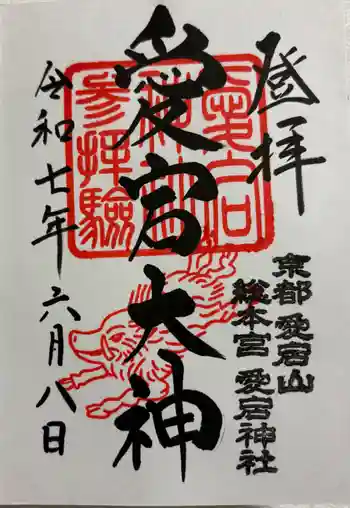 登拝
京都 愛宕山
総本宮 愛宕神社
愛宕大神
愛宕
神社
参拝驗
令和七年六月八日